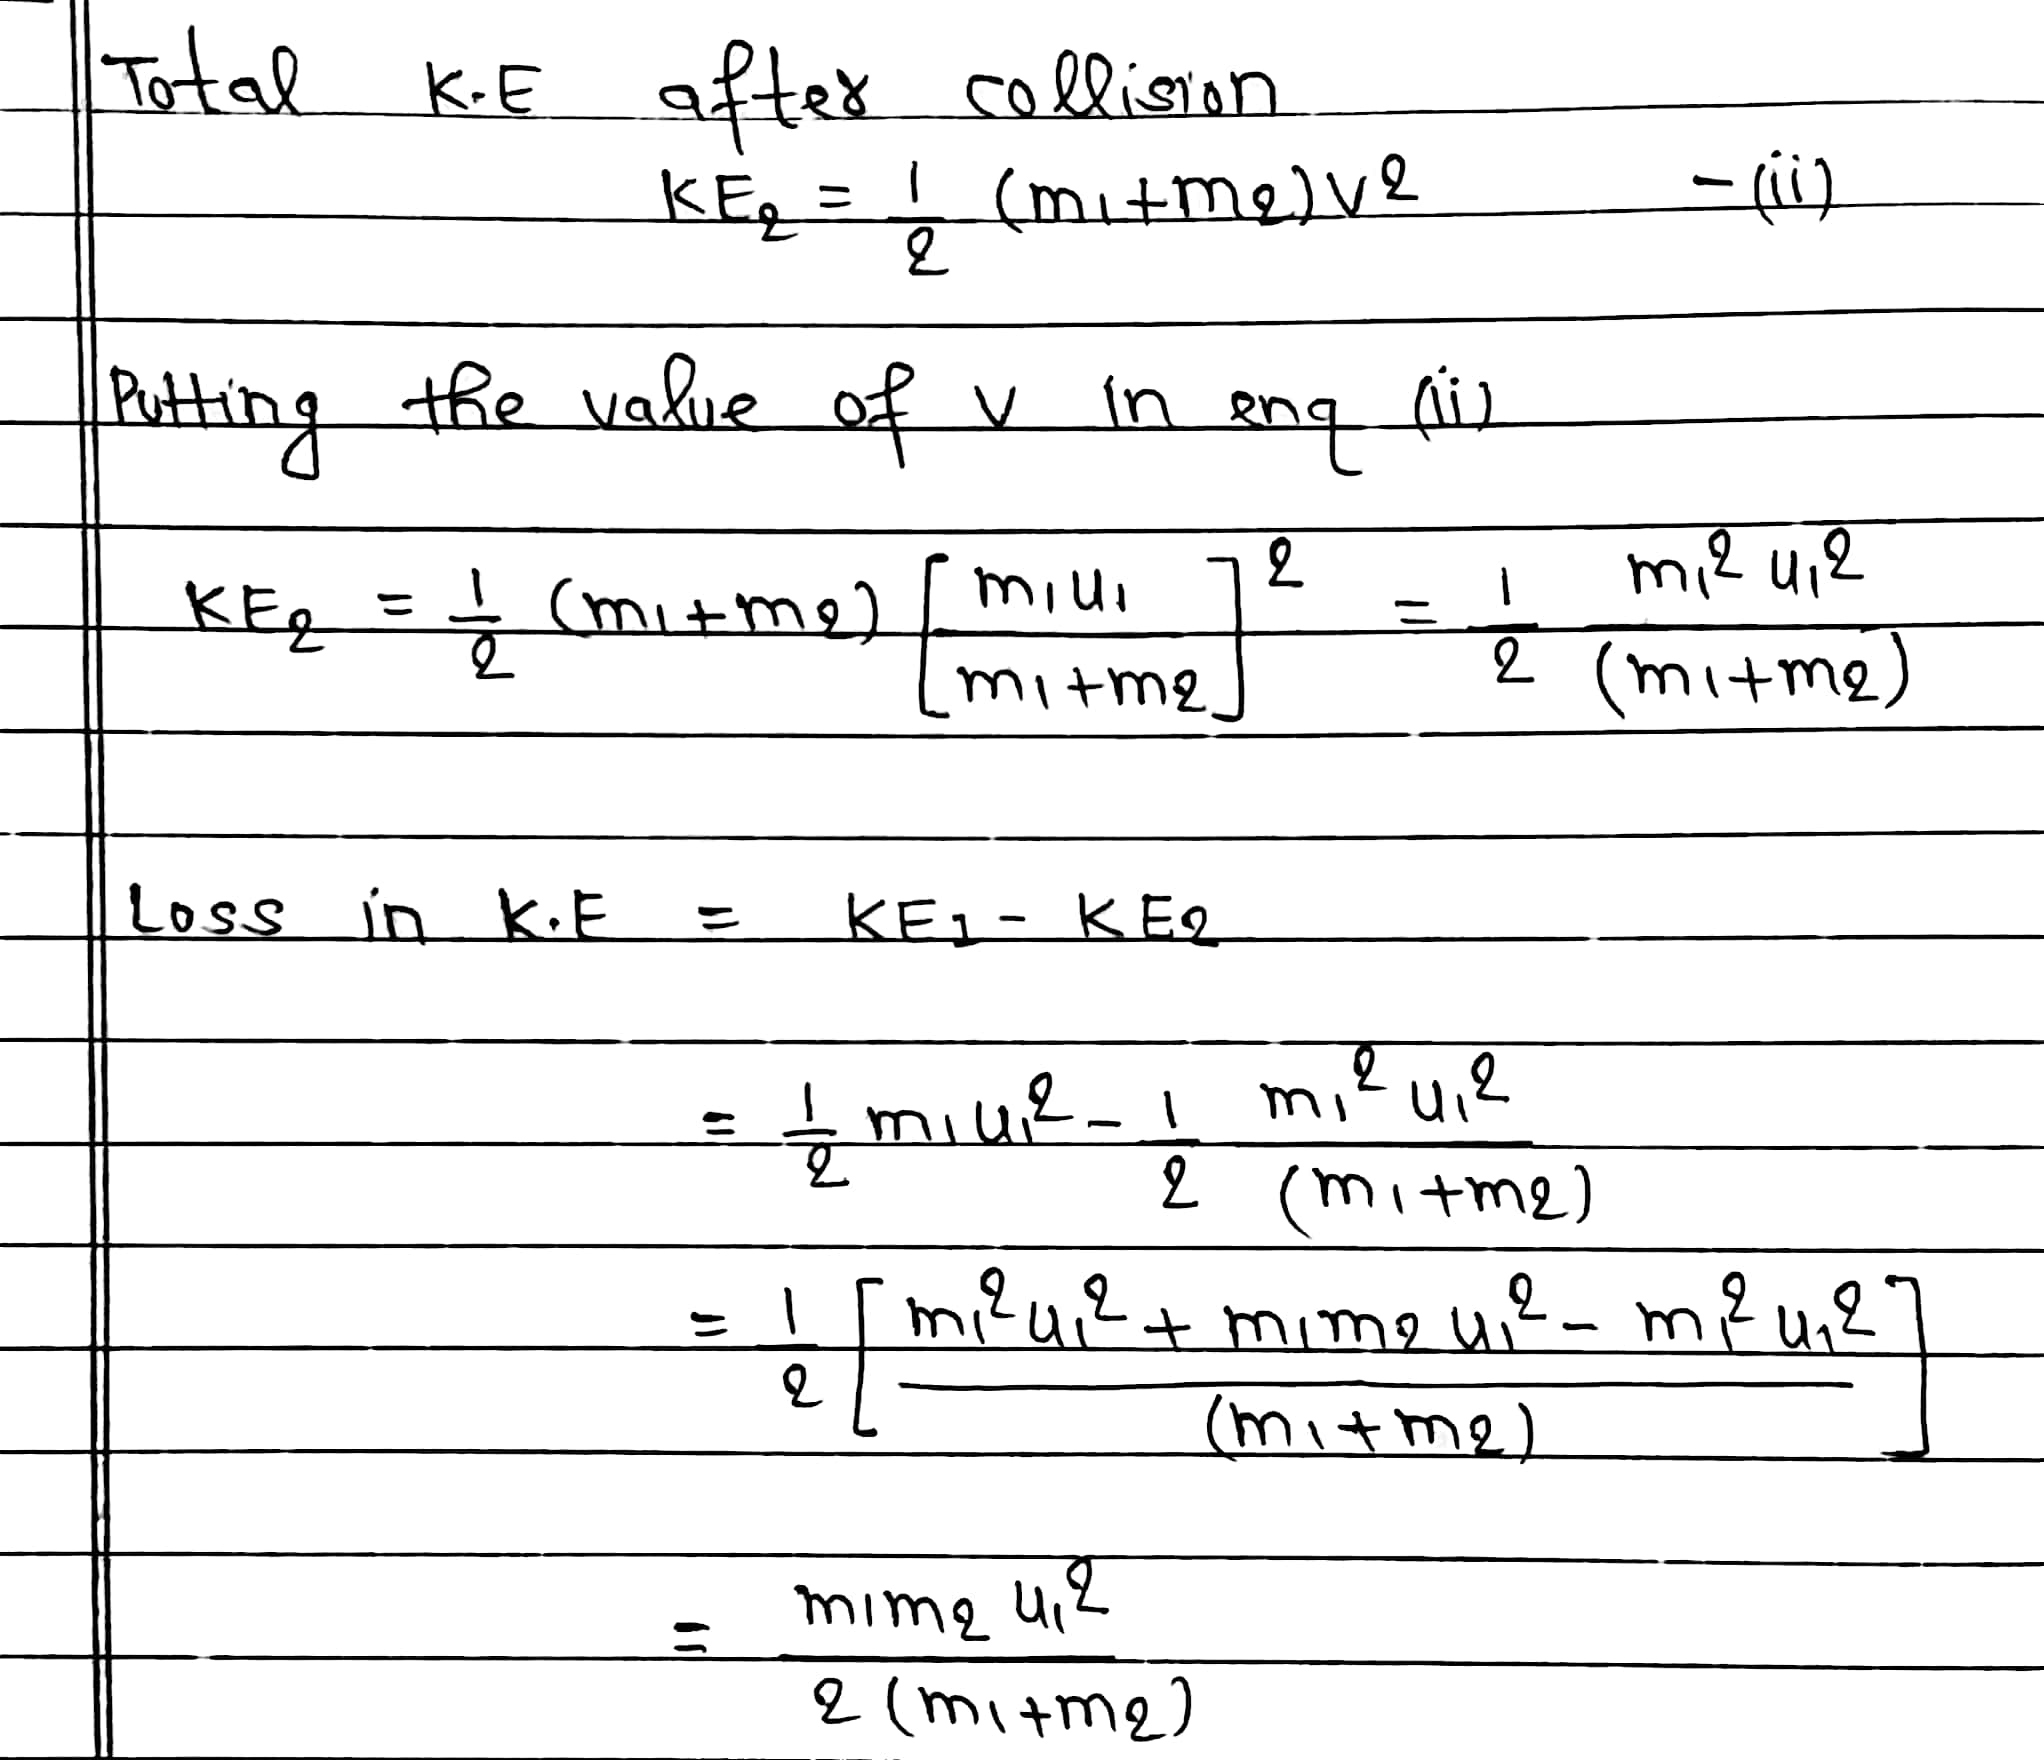 Total K.E after collision
KE₂ = 1/2 (m₁+m₂)v² -(ii)
Putting the value of v in enq (ii)
KE₂ = 1/2 (m₁+m₂) [m₁u₁/m₁+m₂]² = 1/2 m₁²u₁²/(m₁+m₂)
Loss in K.E = KE₁ - KE₂
= 1/2 m₁u₁² - 1/2 m₁²u₁²/(m₁+m₂)
= 1/2 [m₁²u₁² + m₁m₂u₁² - m₁²u₁²/(m₁+m₂)]
= m₁m₂u₁²/2(m₁+m₂)